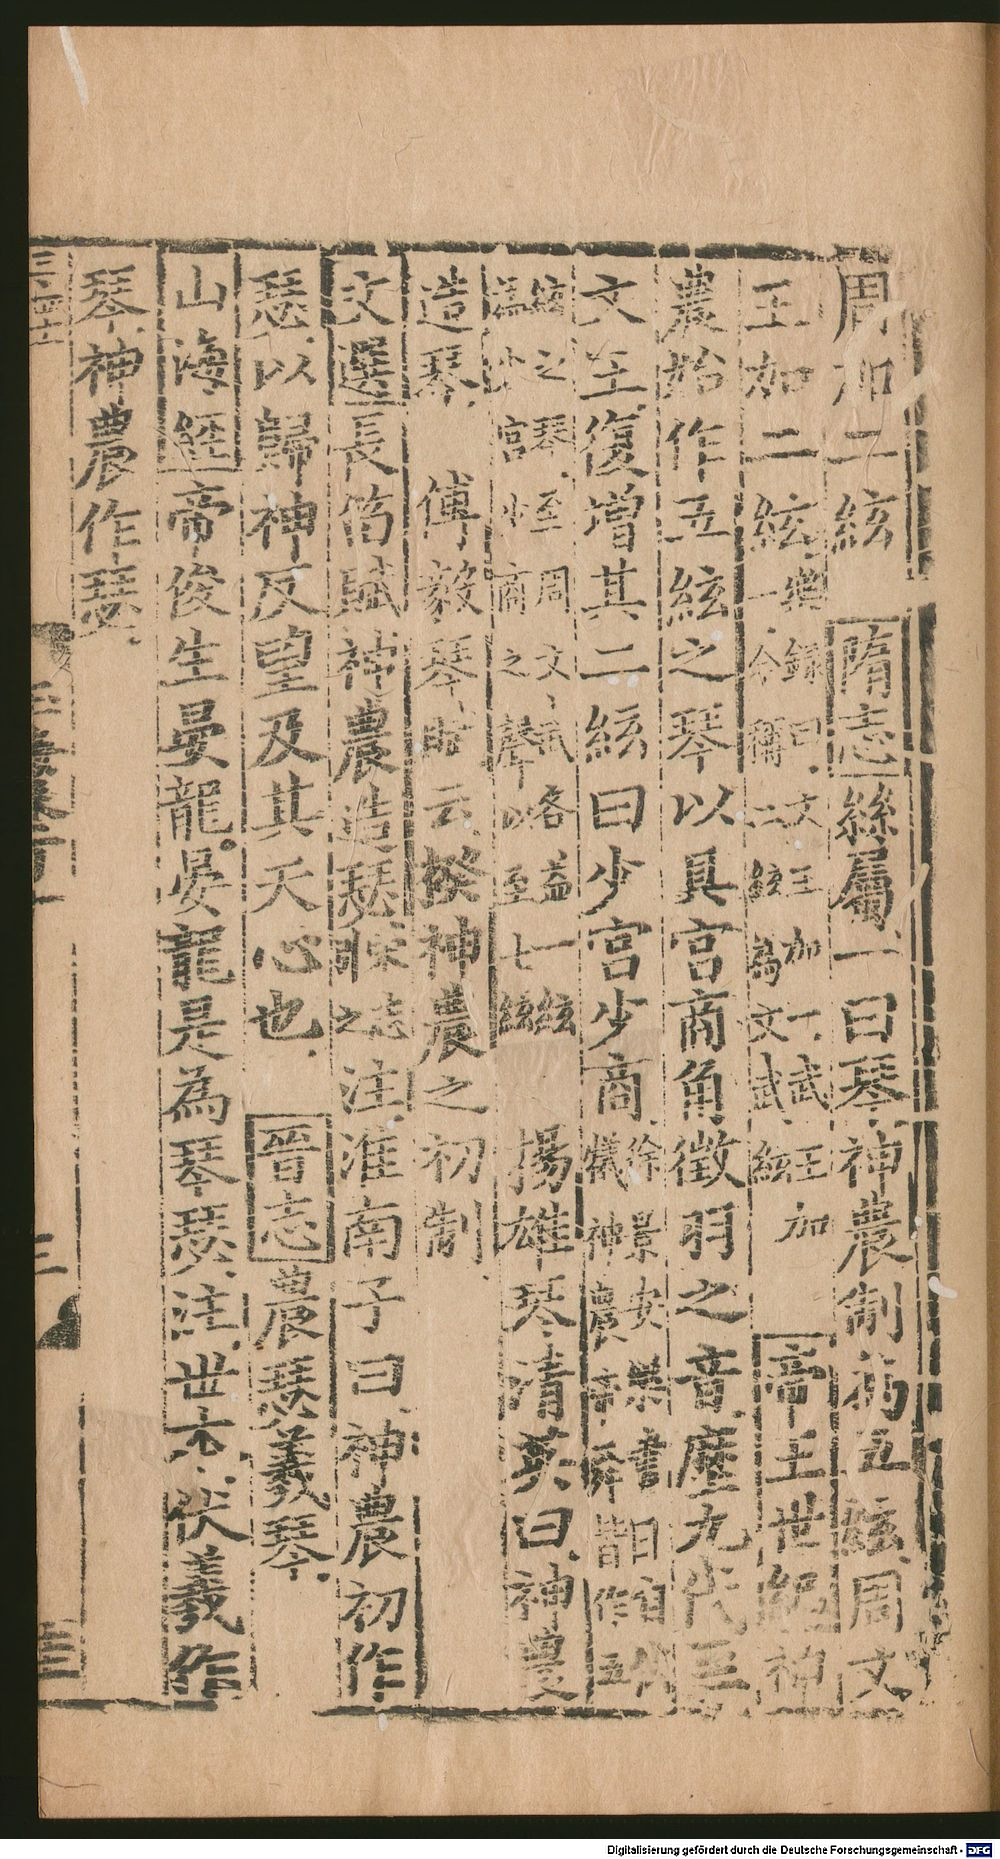 周加二絃 隋志絲屬一曰琴神農制為五絃周文
王加二絃樂錄曰文王加一武王加一今稱二絃為文武絃 帝王世紀神
農始作五絃之琴以具宮商角徵羽之音歷九代至
文王復增其二絃曰少宮少商徐景安樂書曰自伏羲神農帝舜皆作五
絃之琴至周文武各益一絃為少宮少商之聲以至七絃 揚雄琴清英曰神農
造琴 傅毅琴賦云揆神農之初制
文選長笛賦神農造瑟宋志引之注淮南子曰神農初作
瑟以歸神反望及其天心也 晉志農瑟羲琴
山海經帝俊生晏龍晏龍是為琴瑟注世本伏羲作
琴神農作瑟
三百四十
玉海卷一百一十
三